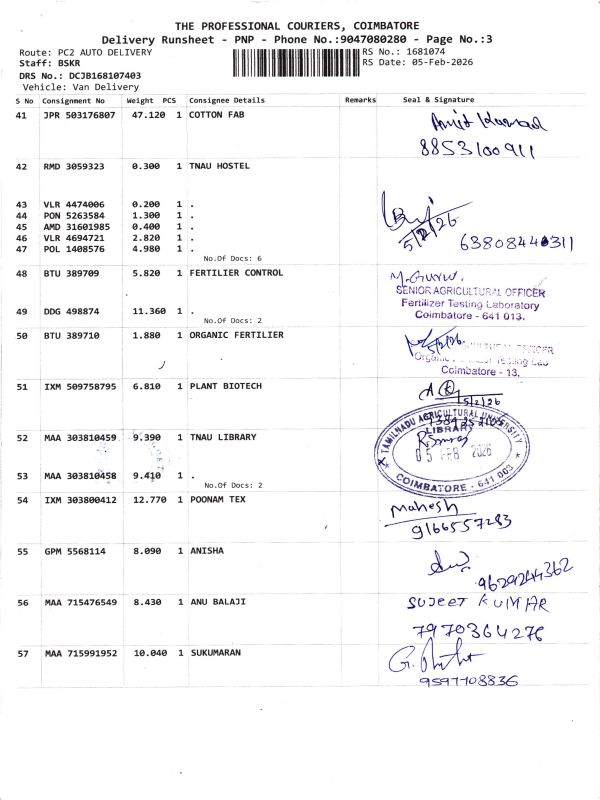 THE PROFESSIONAL COURIERS, COIMBATORE
Delivery Runsheet - PNP - Phone No.:9047080280 - Page No.:3
Route: PC2 AUTO DELIVERY
RS No.: 1681074
Staff: BSKR
RS Date: 05-Feb-2026
DRS No.: DCJB168107403
Vehicle: Van Delivery
S No Consignment No Weight PCS Consignee Details Remarks Seal & Signature
41 JPR 503176807 47.120 1 COTTON FAB
8853100911
42 RMD 3059323 0.300 1 TNAU HOSTEL
43 VLR 4474006 0.200 1 .
44 PON 5263584 1.300 1 .
45 AMD 31601985 0.400 1 .
46 VLR 4694721 2.820 1 .
47 POL 1408576 4.980 1 .
5/2/26
No.Of Docs: 6
48 BTU 389709 5.820 1 FERTILIER CONTROL
M. Guru.
SENIOR AGRICULTURAL OFFICER
Fertilizer Testing Laboratory
Coimbatore - 641 013.
49 DDG 498874 11.360 1 .
No.Of Docs: 2
50 BTU 389710 1.880 1 ORGANIC FERTILIER
5/2/26
Coimbatore - 13.
51 IXM 509758795 6.810 1 PLANT BIOTECH
5/2/26
TAMILNADU AGRICULTURAL UNIVERSITY
LIBRARY
05 FEB 2026
COIMBATORE - 641 003
52 MAA 303810459 9.390 1 TNAU LIBRARY
53 MAA 303810458 9.410 1 .
No.Of Docs: 2
54 IXM 303800412 12.770 1 POONAM TEX
Mahesh
9166557283
55 GPM 5568114 8.090 1 ANISHA
9629244362
56 MAA 715476549 8.430 1 ANU BALAJI
SUJEET KUMAR
7970364276
57 MAA 715991952 10.040 1 SUKUMARAN
9597708836